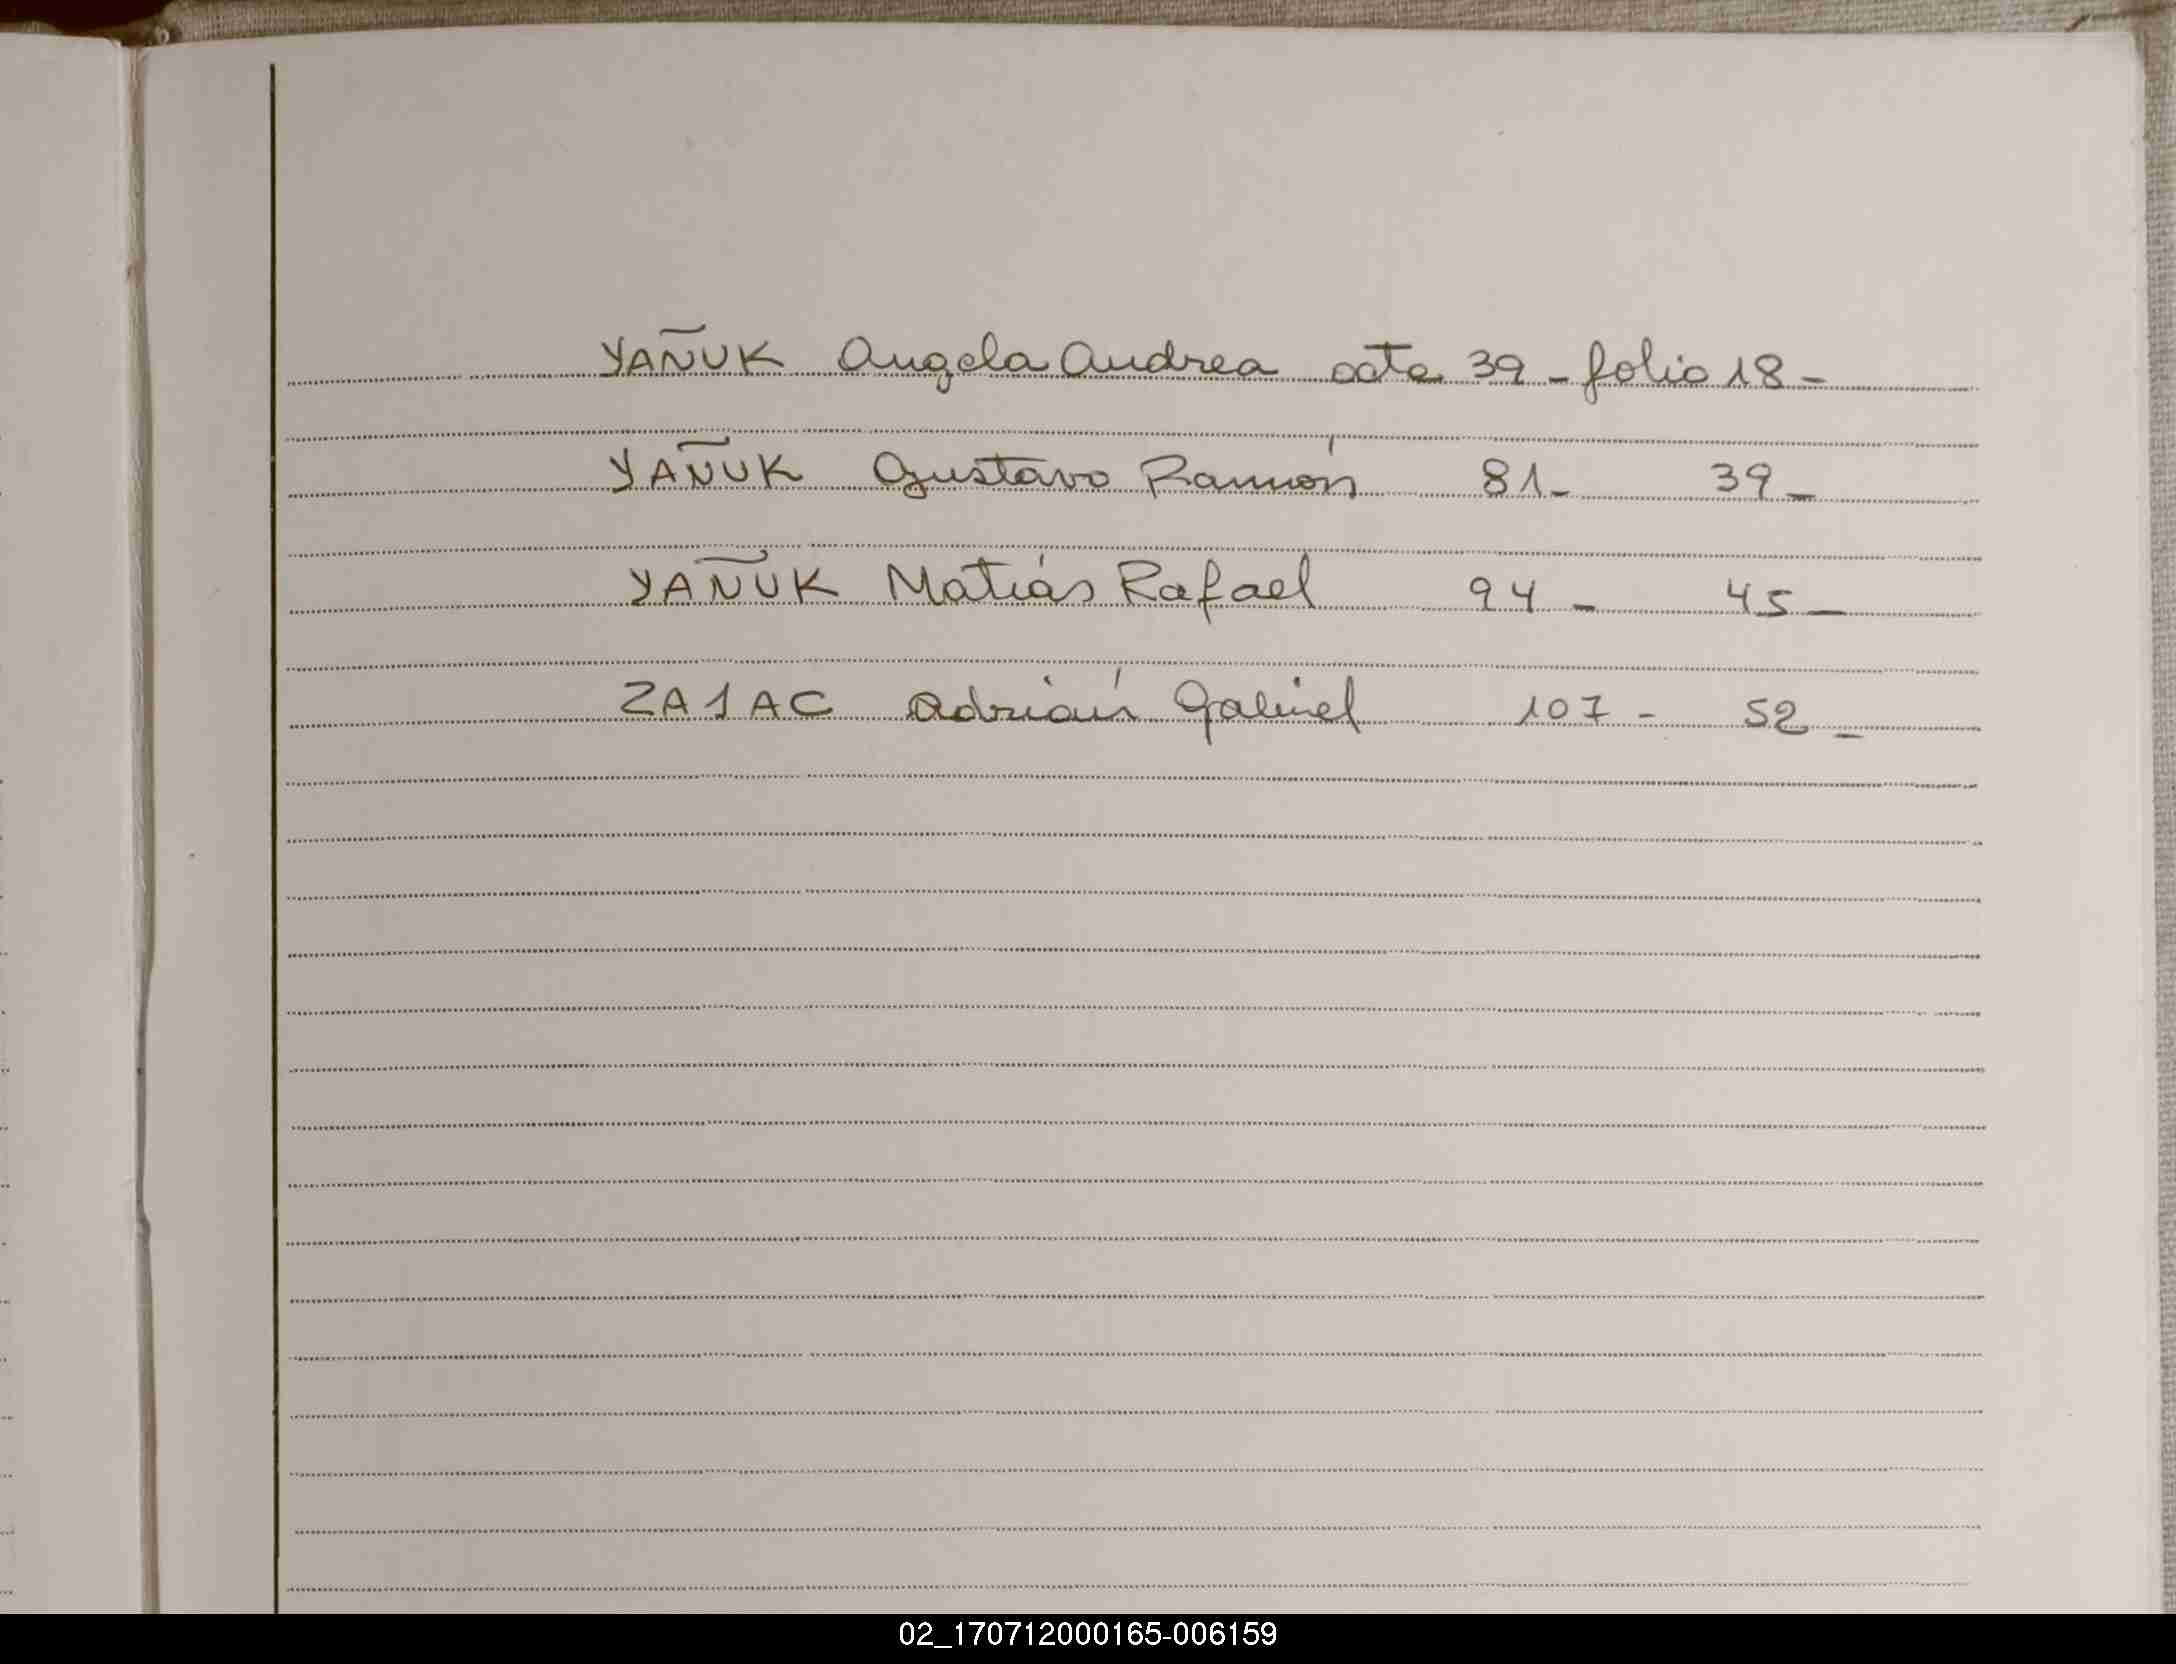 YAÑUK Angela Andrea acta 39 - folio 18 -
YAÑUK Gustavo Ramón 81 - 39 -
YAÑUK Matiás Rafael 94 - 45 -
ZAJAC Adrián Gabriel 107 - 52 -
02_170712000165-006159